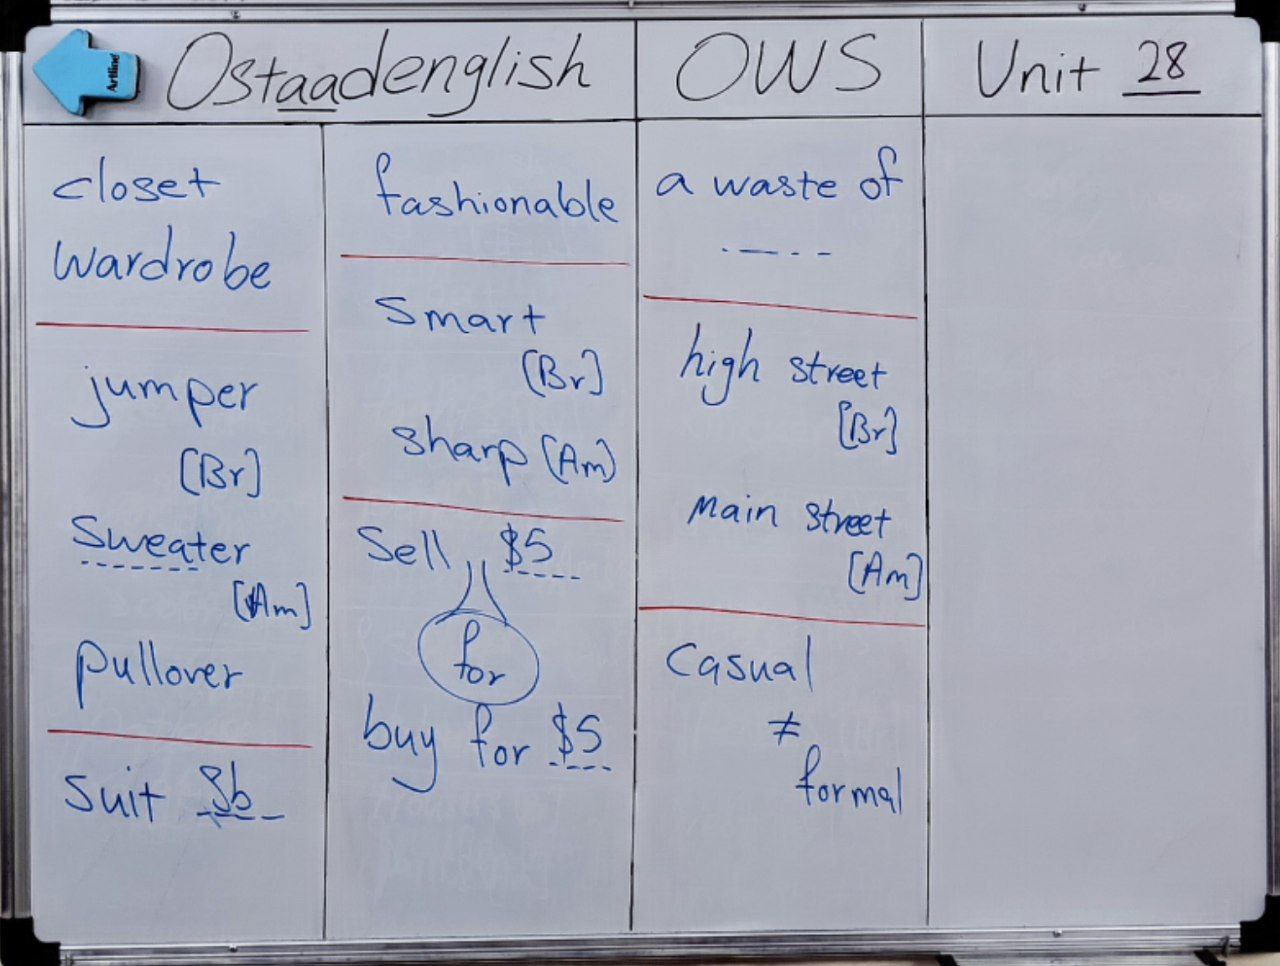 Ostaadenglish OWS Unit 28
Artline
closet
wardrobe
jumper
[Br]
Sweater
[Am]
pullover
Suit Sb
fashionable
Smart
[Br]
Sharp (Am)
Sell $5
for
buy for $5
a waste of
-----
high street
[Br]
Main street
[Am]
Casual
≠
formal